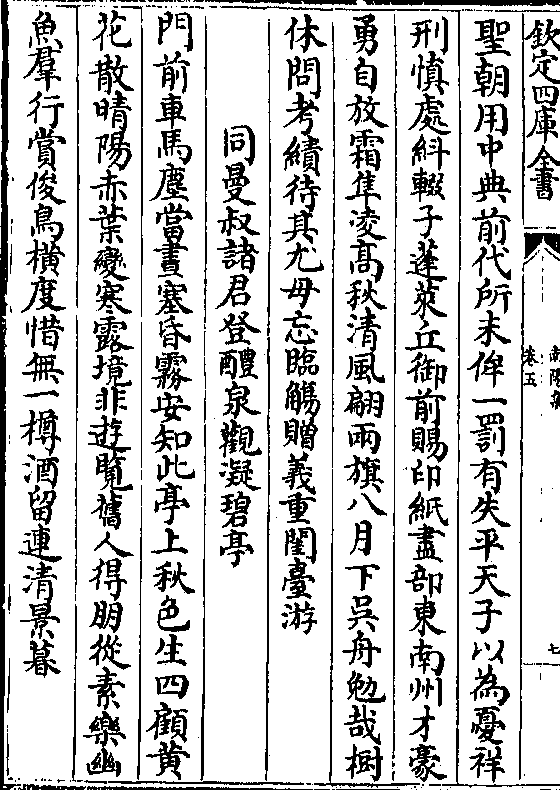 欽定四庫全書
卷五
七
聖朝用中典前代所未侔一罰有失平天子以為憂祥
刑慎處糾輟子蓬萊丘御前賜印紙盡部東南州才豪
勇自放霜隼凌髙秋清風翩兩旗八月下吳舟勉哉樹
休問考績待其尤毋忘臨觴贈義重閨臺游
同曼叔諸君登醴泉觀凝碧亭
門前車馬塵當晝塞昏霧安知此亭上秋色生四顧黄
花散晴陽赤葉變寒露境非遊覽舊人得朋從素樂幽
魚羣行賞俊鳥横度惜無一樽酒留連清景暮